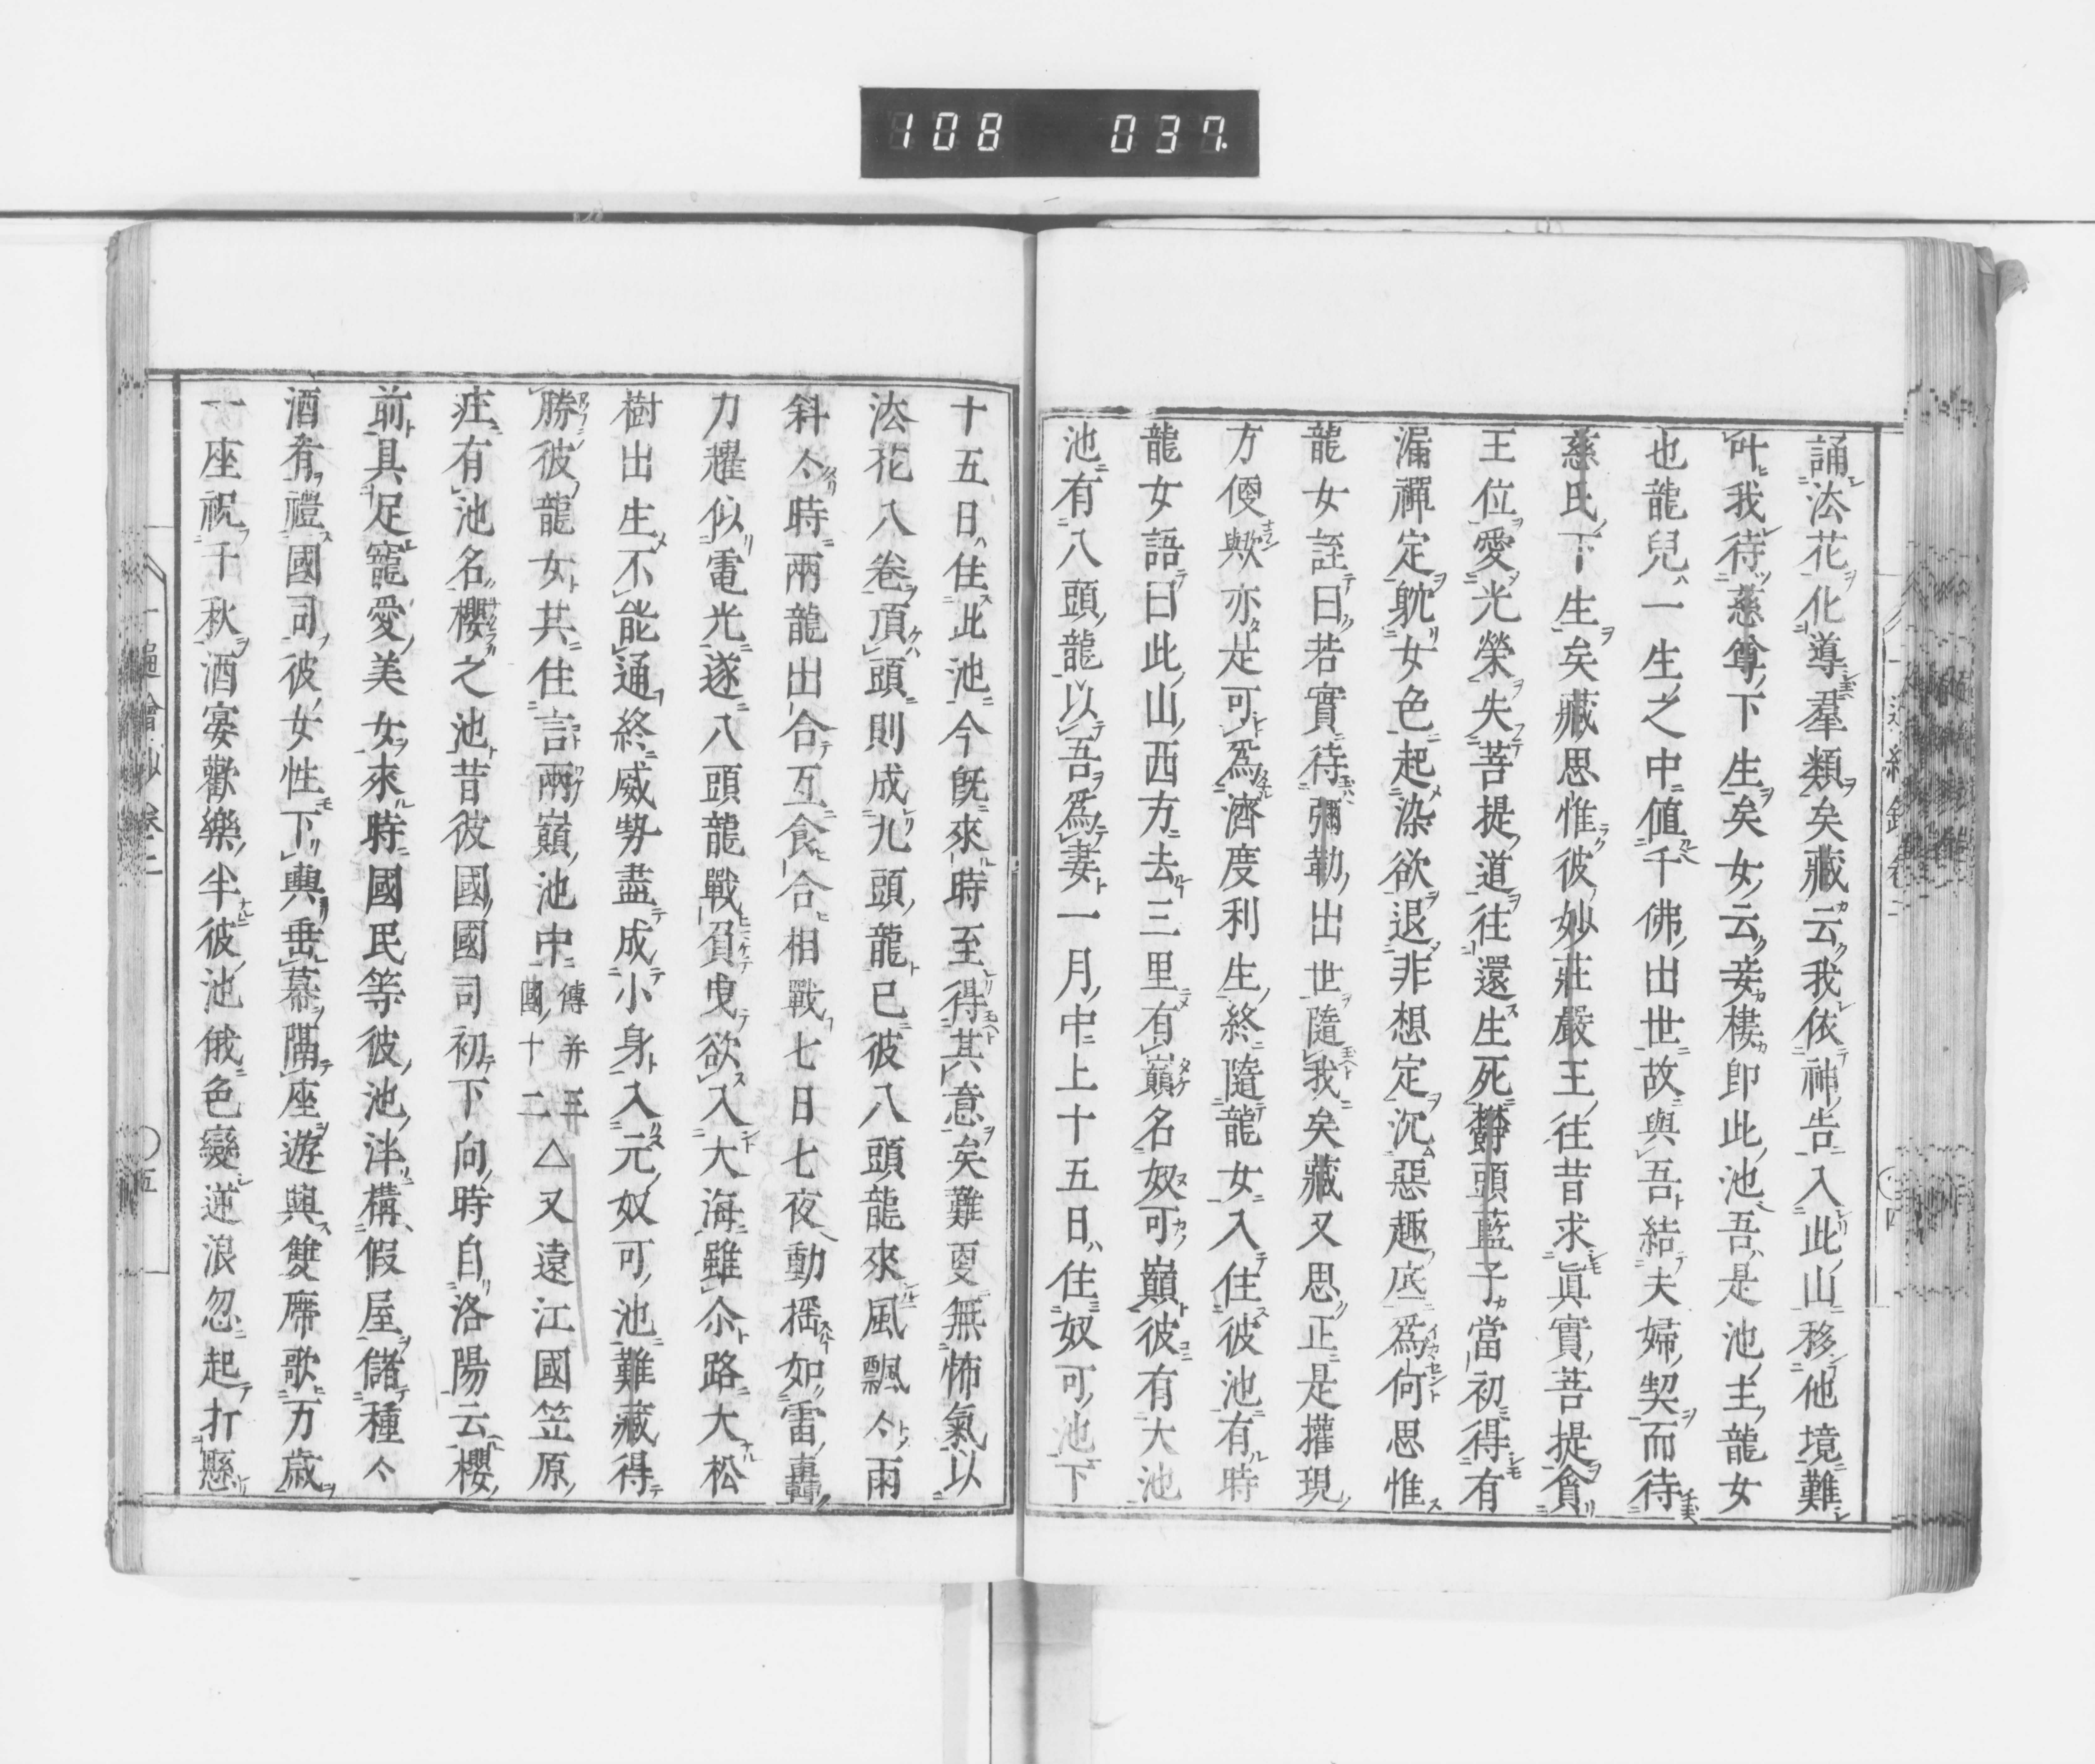 108 037
誦法花化導羣類矣藏云我依神告入此山移他境難
叶我待慈尊下生矣女云妾棲即此池吾是池主龍女
也龍兒一生之中値千佛出世故與吾結夫婦契而待
慈氏下生矣藏思惟彼妙莊嚴王往昔求眞實菩提貪
王位愛光榮失菩提道往還生死欝頭藍子當初得有
漏禪定躭女色起染欲退非想定沉惡趣底爲何思惟
龍女誑曰若實待彌勒出世隨我矣藏又思正是權現
方便歟亦是可爲濟度利生終隨龍女入住彼池有時
龍女語曰此山西方去三里有巓名奴可巓彼有大池
池有八頭龍以吾爲妻一月中上十五日住奴可池下
十五日住此池今既來時至得其意矣難夏無怖氣以
法花八卷頂頭則成九頭龍已彼八頭龍來風飄々雨
斜々時兩龍出合互食合相戰七日七夜動搖如雷轟
力耀似電光遂八頭龍戰負曳欲入大海雖尒路大松
樹出生不能通終威勢盡成小身入元奴可池難藏得
勝彼龍女共住言兩巓池中傳并三國十二△又遠江國笠原
庄有池名櫻之池昔彼國國司初下向時自洛陽云櫻
前具足寵愛美女來時國民等彼池泮構假屋儲種々
酒肴禮國司彼女性下輿垂幕隔座遊與雙席歌万歳
一座祝千秋酒宴歡樂半彼池俄色變逆浪忽起打懸
五